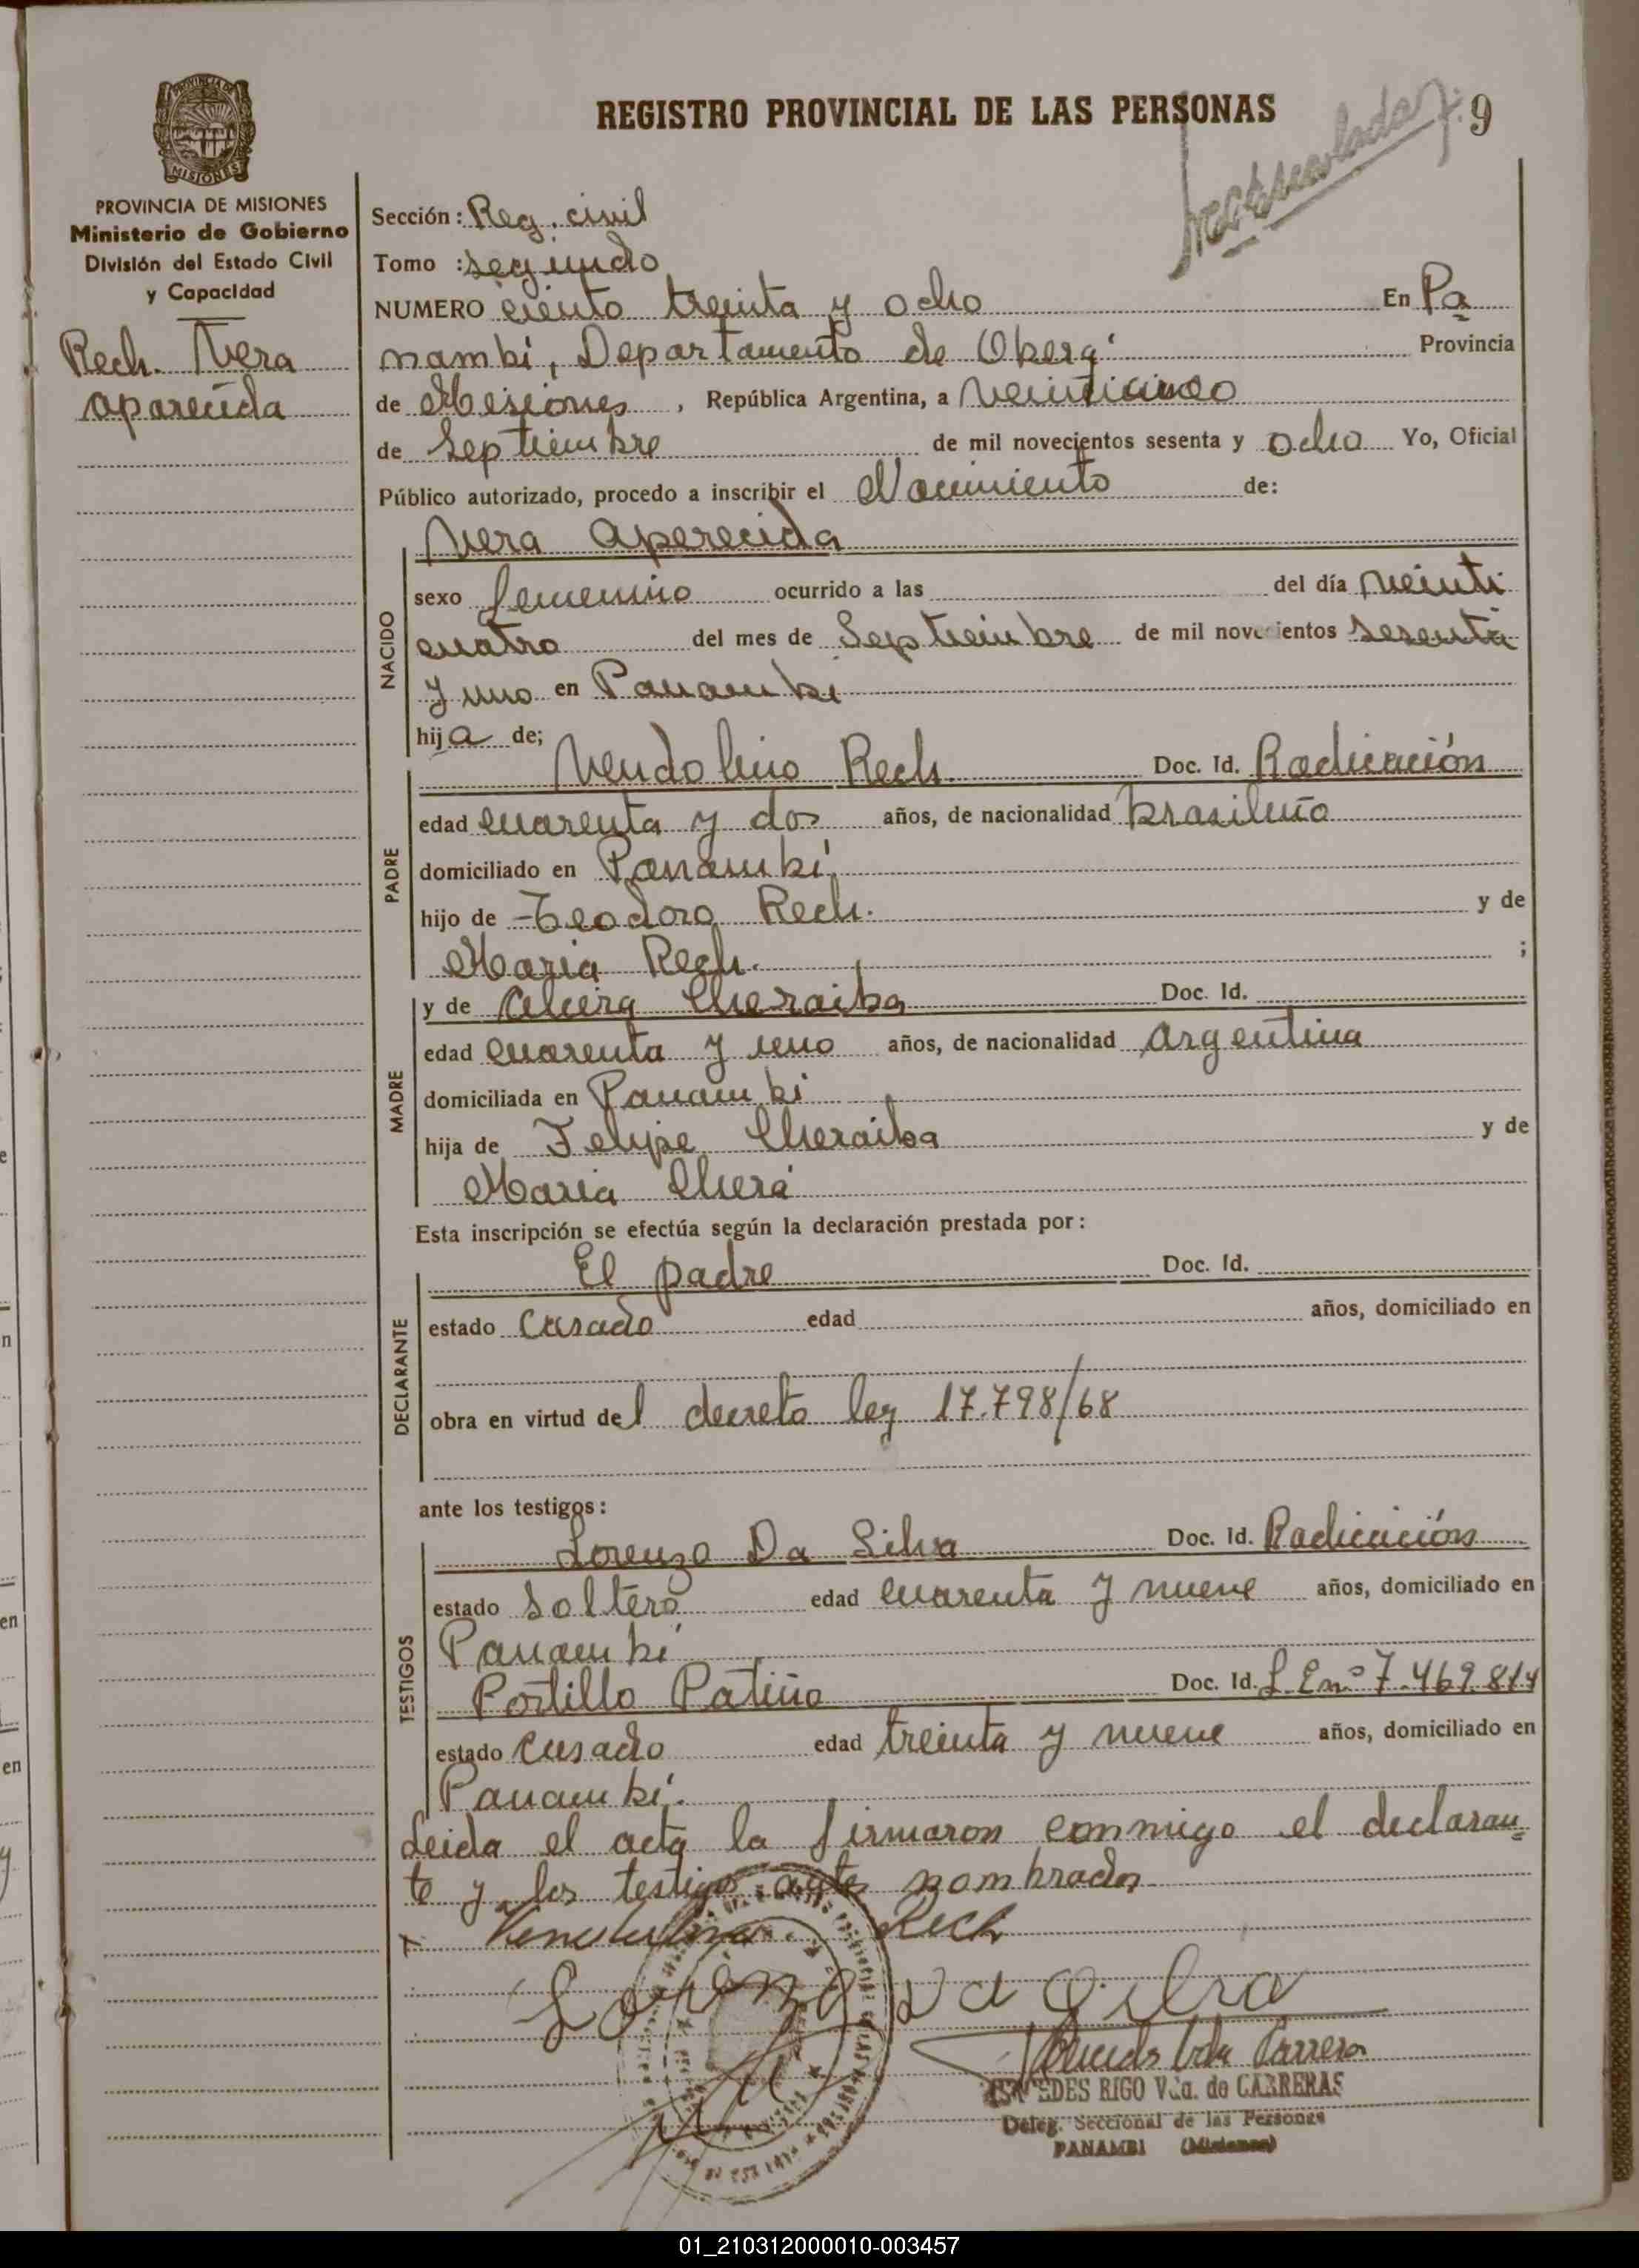 REGISTRO PROVINCIAL DE LAS PERSONAS
9
PROVINCIA DE MISIONES
PROVINCIA DE MISIONES
Ministerio de Gobierno
División del Estado Civil
y Capacidad
Rech. Vera
aparecida
Sección: Reg. civil
Tomo : segundo
NUMERO ciento treinta y ocho En Pa
nambi, Departamento de Oberá Provincia
de Misiones, República Argentina, a veinticinco
de Septiembre de mil novecientos sesenta y ocho Yo, Oficial
Público autorizado, procedo a inscribir el Nacimiento de:
Vera Aperecida
NACIDO
sexo femenino ocurrido a las del día veinti
cuatro del mes de Septiembre de mil novecientos sesenta
y uno en Panambi
hija de;
PADRE
Vendolino Rech. Doc. Id. Radicación
edad cuarenta y dos años, de nacionalidad brasileño
domiciliado en Panambí
hijo de Teodoro Rech. y de
Maria Rech. ;
MADRE
y de Doc. Id.
edad cuarenta y uno años, de nacionalidad Argentina
domiciliada en Panambi
hija de Felipe y de
Maria
Esta inscripción se efectúa según la declaración prestada por:
DECLARANTE
El padre Doc. Id.
estado Casado edad años, domiciliado en
obra en virtud del decreto ley 17.798/68
ante los testigos:
TESTIGOS
Lorenzo Da Silva Doc. Id. Radicación
estado Soltero edad cuarenta y nueve años, domiciliado en
Panambi
Portillo Patiño Doc. Id. L. E nº 7.469.814
estado casado edad treinta y nueve años, domiciliado en
Panambí.
Leida el acta la firmaron conmigo el declaran
te y los testigos antes nombrados
Rech
Lorenzo da Silva
RIGO Vda. de CARRERAS
Deleg. Seccional de las Personas
PANAMBI (Misiones)
01_210312000010-003457